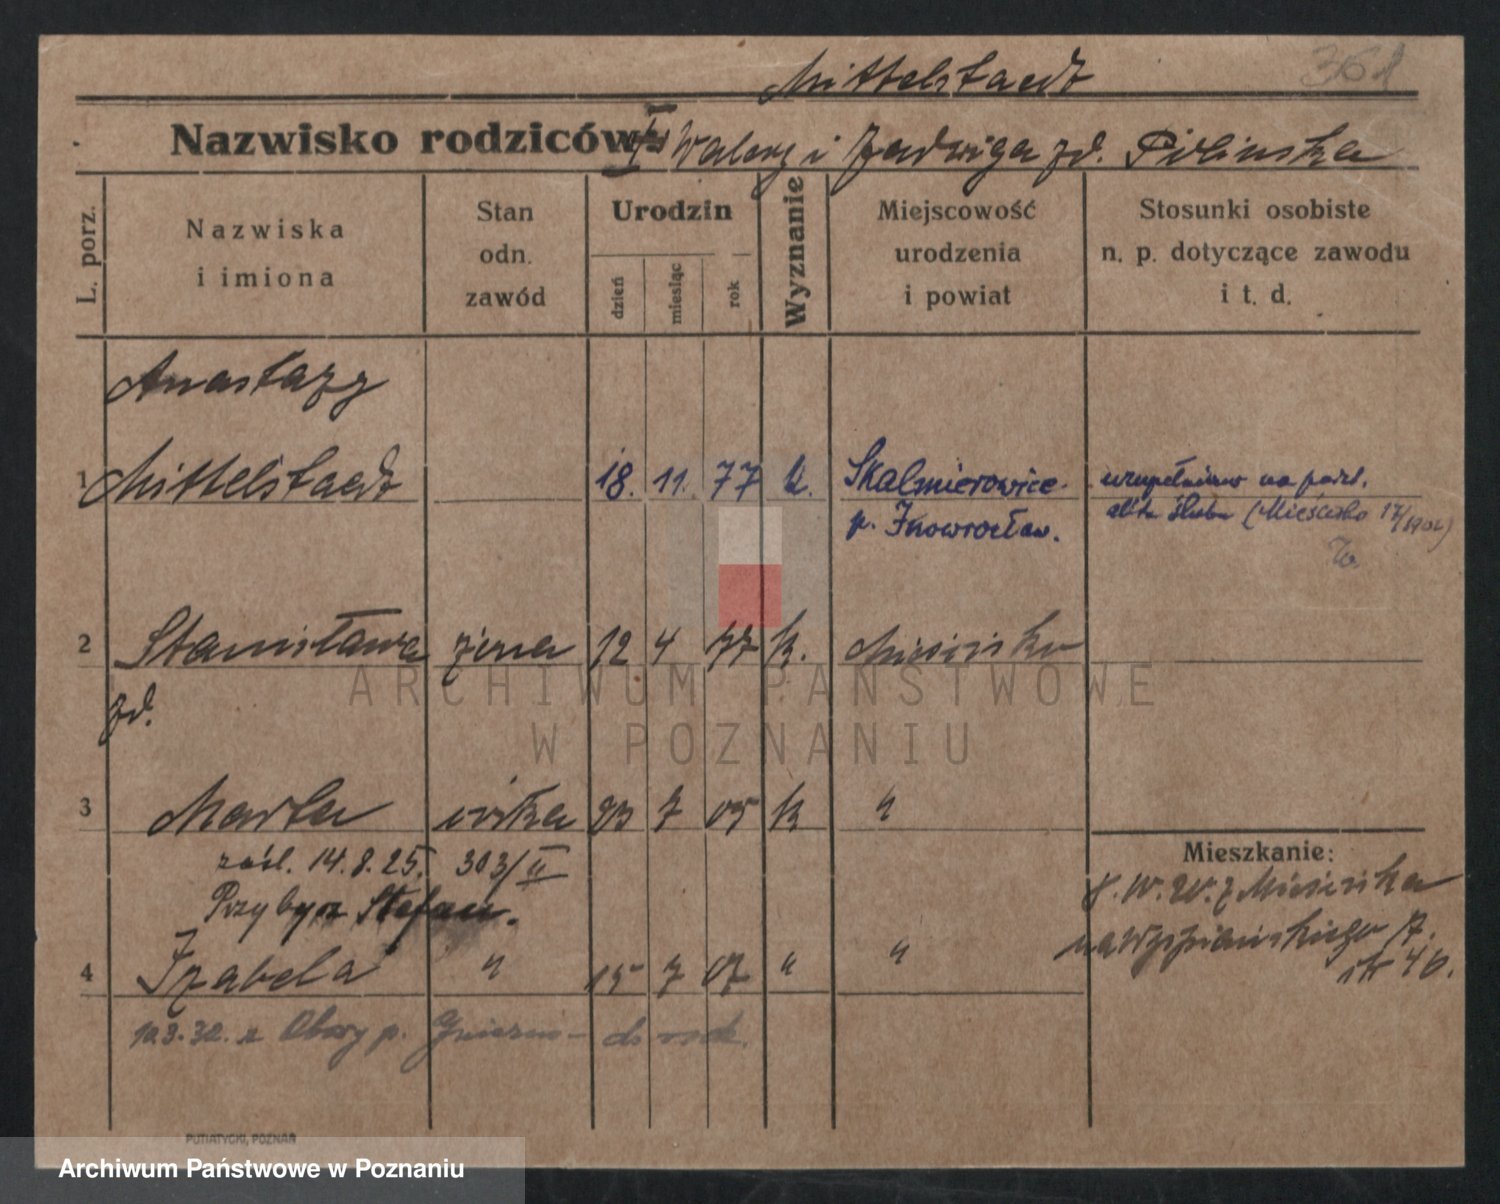 Mittelstaedt 361
Nazwisko rodziców: Walery i Jadwiga zd. Pilinska
L. porz.
Nazwiska
i imiona
Stan
odn.
zawód
Urodzin
dzień
miesiąc
rok
Wyznanie
Miejscowość
urodzenia
i powiat
Stosunki osobiste
n. p. dotyczące zawodu
i t. d.
Anastazy
1 Mittelstaedt 18. 11. 77 k. Skalmierowice uzupełniono na podst.
p. Inowrocław. aktu ślubu (Mieścisko 17/1904)
2 Stanisława żona 12 4 77 k. Mieścisko
zd.
3 Marta córka 23 7 05 k "
zaśl. 14.8.25. 303/II
Przybysz Stefan.
Mieszkanie:
z Mieściska
na Wyspiańskiego
4 Izabela " 15 7 07 " "
10.3.32. z Obory p. Gniezno -
PUTIATYCKI, POZNAŃ
ARCHIWUM PAŃSTWOWE
W POZNANIU
Archiwum Państwowe w Poznaniu